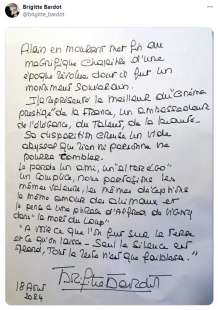 Brigitte Bardot
@brigitte_bardot
Alain en mourant met fin au
magnifique chapitre d'une
époque révolue dont il fut un
monument souverain.
Il représente le meilleur du Cinéma
prestige de la France, un ambassadeur
de l'élégance, du Talent, de la beauté.
Sa disparition creuse un vide
abyssal que rien ni personne ne
pourra combler.
Je perds un ami, un "alter ego"
un complice, nous partagions les
même valeurs, les mêmes déceptions
le même amour des animaux et
je pense à une phrase d'Alfred de Vigny
dans "la mort du Loup"
"A voir ce que l'on fut sur la Terre
et ce qu'on laisse - Seul le silence est
grand, Tout le reste n'est que faiblesse."
Brigitte Bardot
18 Août
2024